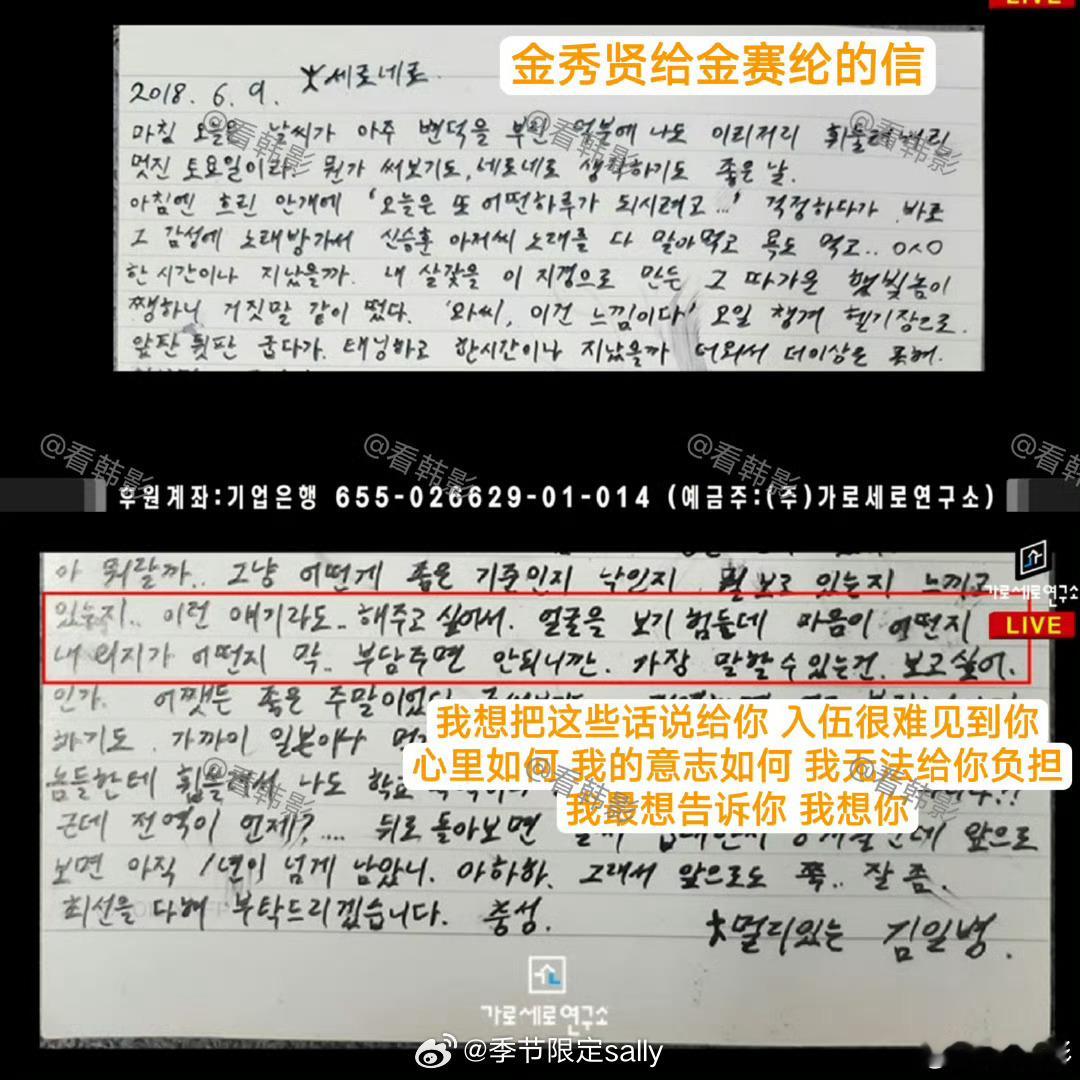 LIVE
金秀贤给金赛纶的信
2018. 6. 9. 세로네로.
마침 오늘은 날씨가 아주 변덕을 부린 덕분에 나도 이리저리
멋진 토요일이라. 뭔가 써보기도, 네로네로 생각하기도 좋은 날.
아침엔 흐린 안개에 '오늘은 또 어떤하루가 되시려고...' 걱정하다가 바로
그 감성에 노래방가서 신승훈 아저씨 노래를 다 말아먹고 욕도 먹고.. ㅇㅅㅇ
한 시간이나 지났을까. 내 살갗을 이 지경으로 만든 그 따가운 햇빛놈이
쨍하니 거짓말 같이 떴다. '와씨, 이건 느낌이다' 오일 챙겨 헬기장으로.
앞판 뒷판 굽다가. 태닝하고 한시간이나 지났을까 더워서 더이상은 못해.
@看韩影
@看韩影
@看韩影
@看韩影
@看韩影
후원계좌:기업은행 655-026629-01-014 (예금주:(주)가로세로연구소)
아 뭐랄까.. 그냥 어떤게 좋은 기준인지 낙인지 뭘 보고 있는지 느끼고
가로세로연구소
있는지.. 이런 얘기라도.. 해주고 싶어서. 얼굴을 보기 힘든데 마음이 어떤지
LIVE
내 의지가 어떤지 막.. 부담주면 안되니깐. 가장 말할수있는건. 보고싶어.
인가. 어쨌든 좋은 주말이었다
我想把这些话说给你 入伍很难见到你
하기도. 가까이 일본이나
心里如何 我的意志如何 我无法给你负担
놈들한테 휩쓸려서 나도
我最想告诉你 我想你
근데 전역이 언제?.... 뒤로 돌아보면 앞으로
보면 아직 1년이 넘게 남았니. 아하하. 그래서 앞으로도 쭉.. 잘 좀.
최선을 다해 부탁드리겠습니다. 충성.
멀리있는 김일병.
가로세로연구소
@季节限定sally